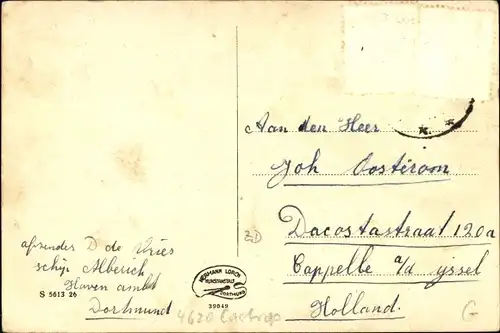 Aan den Heer
Joh Oosterom
Dacostastraat 120a
Cappelle a/d ijssel
Holland.
afzender D de Vries
schip Alberich
Haven ambt
Dortmund
S 5613 26
HERMANN LORCH
KUNSTANSTALT
DORTMUND
39049
4620
G